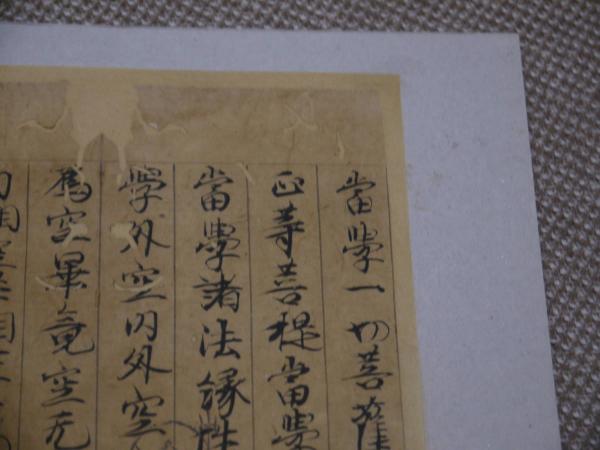 當學一切菩薩
正等菩提當學
當學諸法緣性
學外空內外空
為空畢竟空无
相空共相空